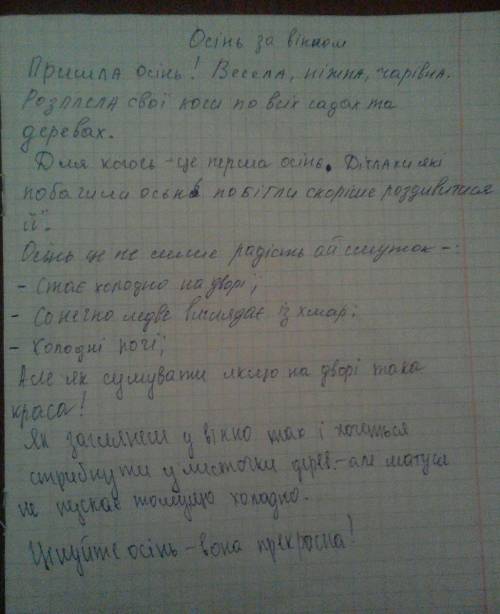 Осінь за вікном
Прийшла осінь! Весела, ніжна, чарівна.
Розплела свої коси по всіх садах та
деревах.
Для когось - це перша осінь. Дітлахи які
побачили осінь побігли скоріше роздивитися
її.
Осінь це не лише радість а й смуток -:
- Стає холодно на дворі;
- Сонечко ледве виглядає із хмар;
- Холодні ночі;
Але як сумувати якщо на дворі така
краса!
Як заглянеш у вікно так і хочеться
стрибнути у листочки дерев - але матуся
не пускає тому що холодно.
Цінуйте осінь - вона прекрасна!